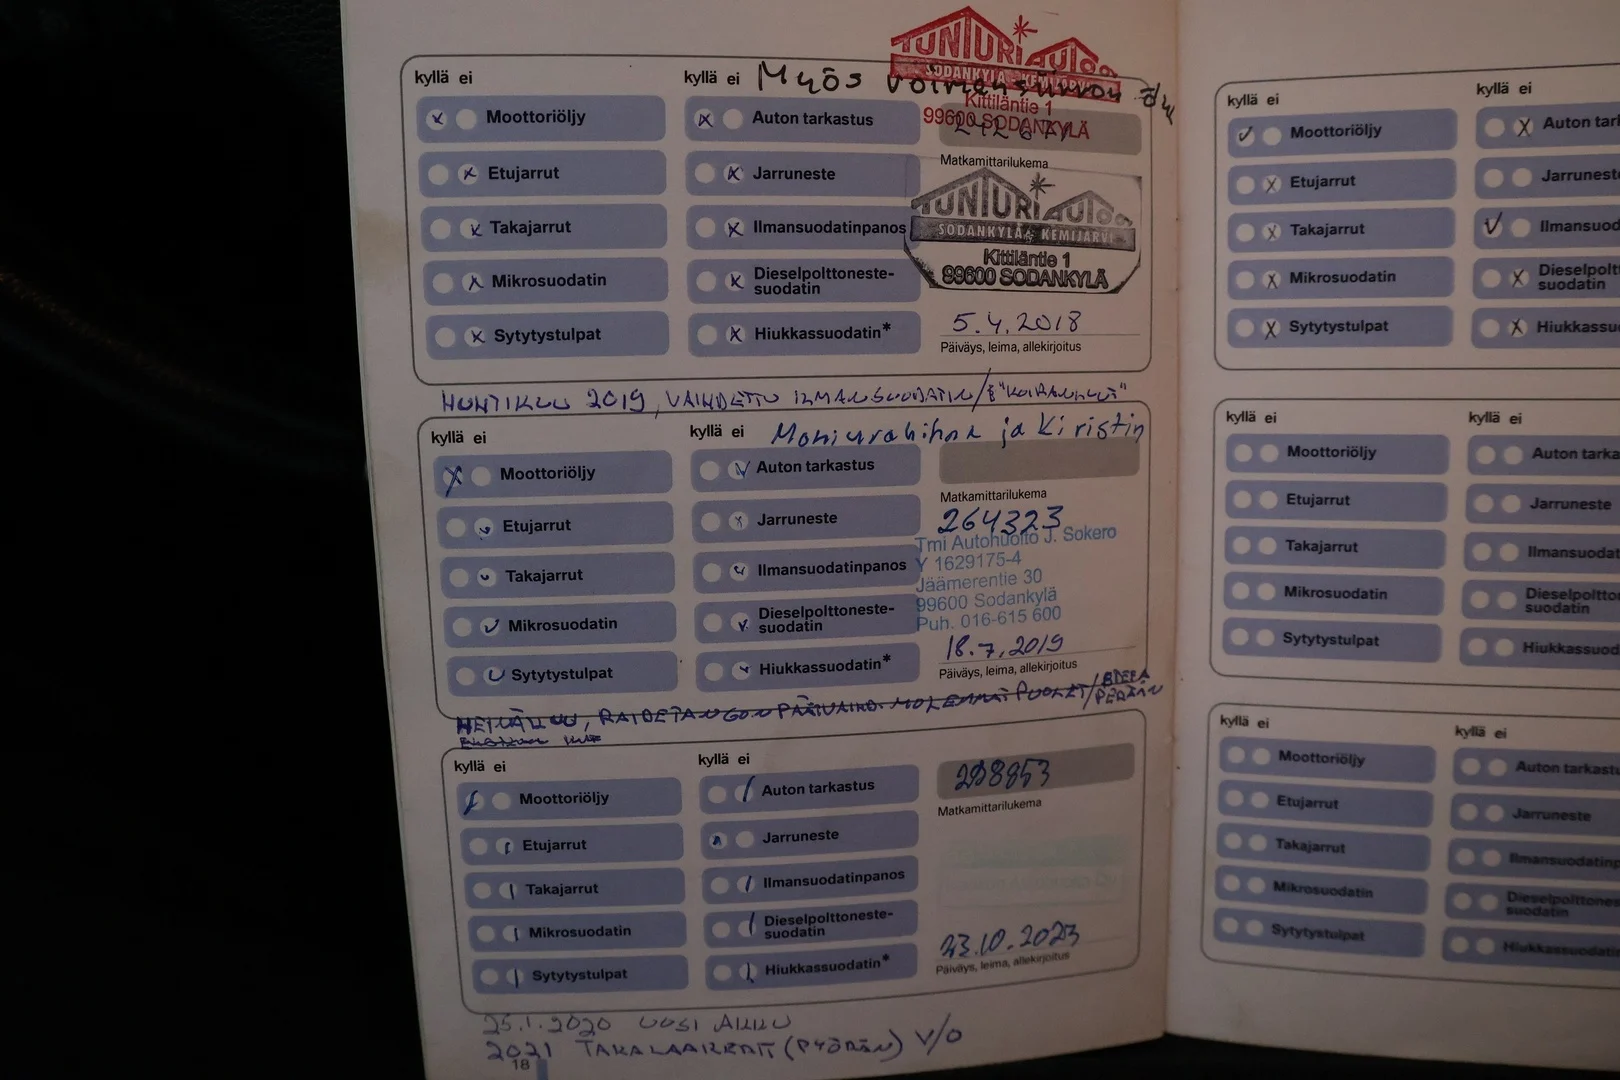 kyllä ei
kyllä ei Myös
TUNTURI Autoa
SODANKYLÄ - KEMIJÄRVI
Kittiläntie 1
99600 SODANKYLÄ
Moottoriöljy
Auton tarkastus
Etujarrut
Jarruneste
Takajarrut
Ilmansuodatinpanos
Mikrosuodatin
Dieselpolttoneste-
suodatin
Sytytystulpat
Hiukkassuodatin*
Matkamittarilukema
TUNTURI Autoa
SODANKYLÄ - KEMIJÄRVI
Kittiläntie 1
99600 SODANKYLÄ
5.4.2018
Päiväys, leima, allekirjoitus
HUHTIKUU 2019, VAIHDETTU ILMANSUODATIN/
kyllä ei
kyllä ei Moniurahihna ja Kiristin
Moottoriöljy
Auton tarkastus
Etujarrut
Jarruneste
Takajarrut
Ilmansuodatinpanos
Mikrosuodatin
Dieselpolttoneste-
suodatin
Sytytystulpat
Hiukkassuodatin*
Matkamittarilukema
264323
Tmi Autohuolto J. Sokero
Y 1629175-4
Jäämerentie 30
99600 Sodankylä
Puh. 016-615 600
18.7.2019
Päiväys, leima, allekirjoitus
HEINÄKUU, RAIDETANGON PÄÄ VAIHD. MOLEMMAT PUOLET/
kyllä ei
kyllä ei
Moottoriöljy
Auton tarkastus
Etujarrut
Jarruneste
Takajarrut
Ilmansuodatinpanos
Mikrosuodatin
Dieselpolttoneste-
suodatin
Sytytystulpat
Hiukkassuodatin*
Matkamittarilukema
23.10.2023
Päiväys, leima, allekirjoitus
25.1.2020 UUSI AKKU
2021 TAKALAAKERIT (PYÖRÄN) V/O
18
kyllä ei
kyllä ei
Moottoriöljy
Auton tar
Etujarrut
Jarrunest
Takajarrut
Ilmansuod
Mikrosuodatin
Dieselpolt
suodatin
Sytytystulpat
Hiukkassu
kyllä ei
kyllä ei
Moottoriöljy
Auton tarka
Etujarrut
Jarruneste
Takajarrut
Ilmansuodat
Mikrosuodatin
Dieselpoltto
suodatin
Sytytystulpat
Hiukkassuod
kyllä ei
kyllä ei
Moottoriöljy
Auton tarkastu
Etujarrut
Jarruneste
Takajarrut
Ilmansuodatinp
Mikrosuodatin
Dieselpolttones
suodatin
Sytytystulpat
Hiukkassuodatin